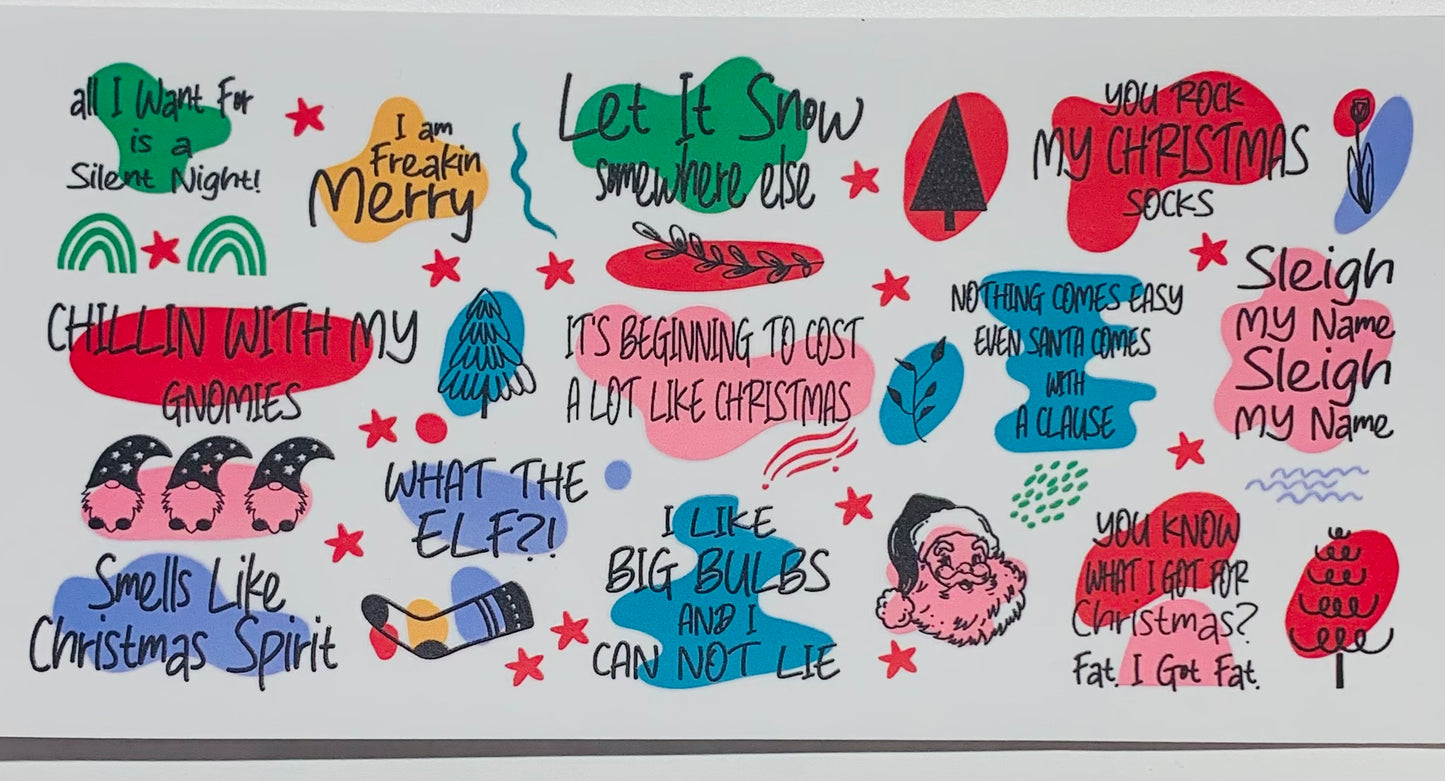 all I Want For
is a
Silent Night!
I am
Freakin
Merry
Let It Snow
somewhere else
YOU ROCK
MY CHRISTMAS
SOCKS
CHILLIN WITH MY
GNOMIES
IT'S BEGINNING TO COST
A LOT LIKE CHRISTMAS
NOTHING COMES EASY
EVEN SANTA COMES
WITH
A CLAUSE
Sleigh
MY Name
Sleigh
MY Name
WHAT THE
ELF?!
Smells Like
Christmas Spirit
I LIKE
BIG BULBS
AND I
CAN NOT LIE
YOU KNOW
WHAT I GOT FOR
Christmas?
Fat. I Got Fat.